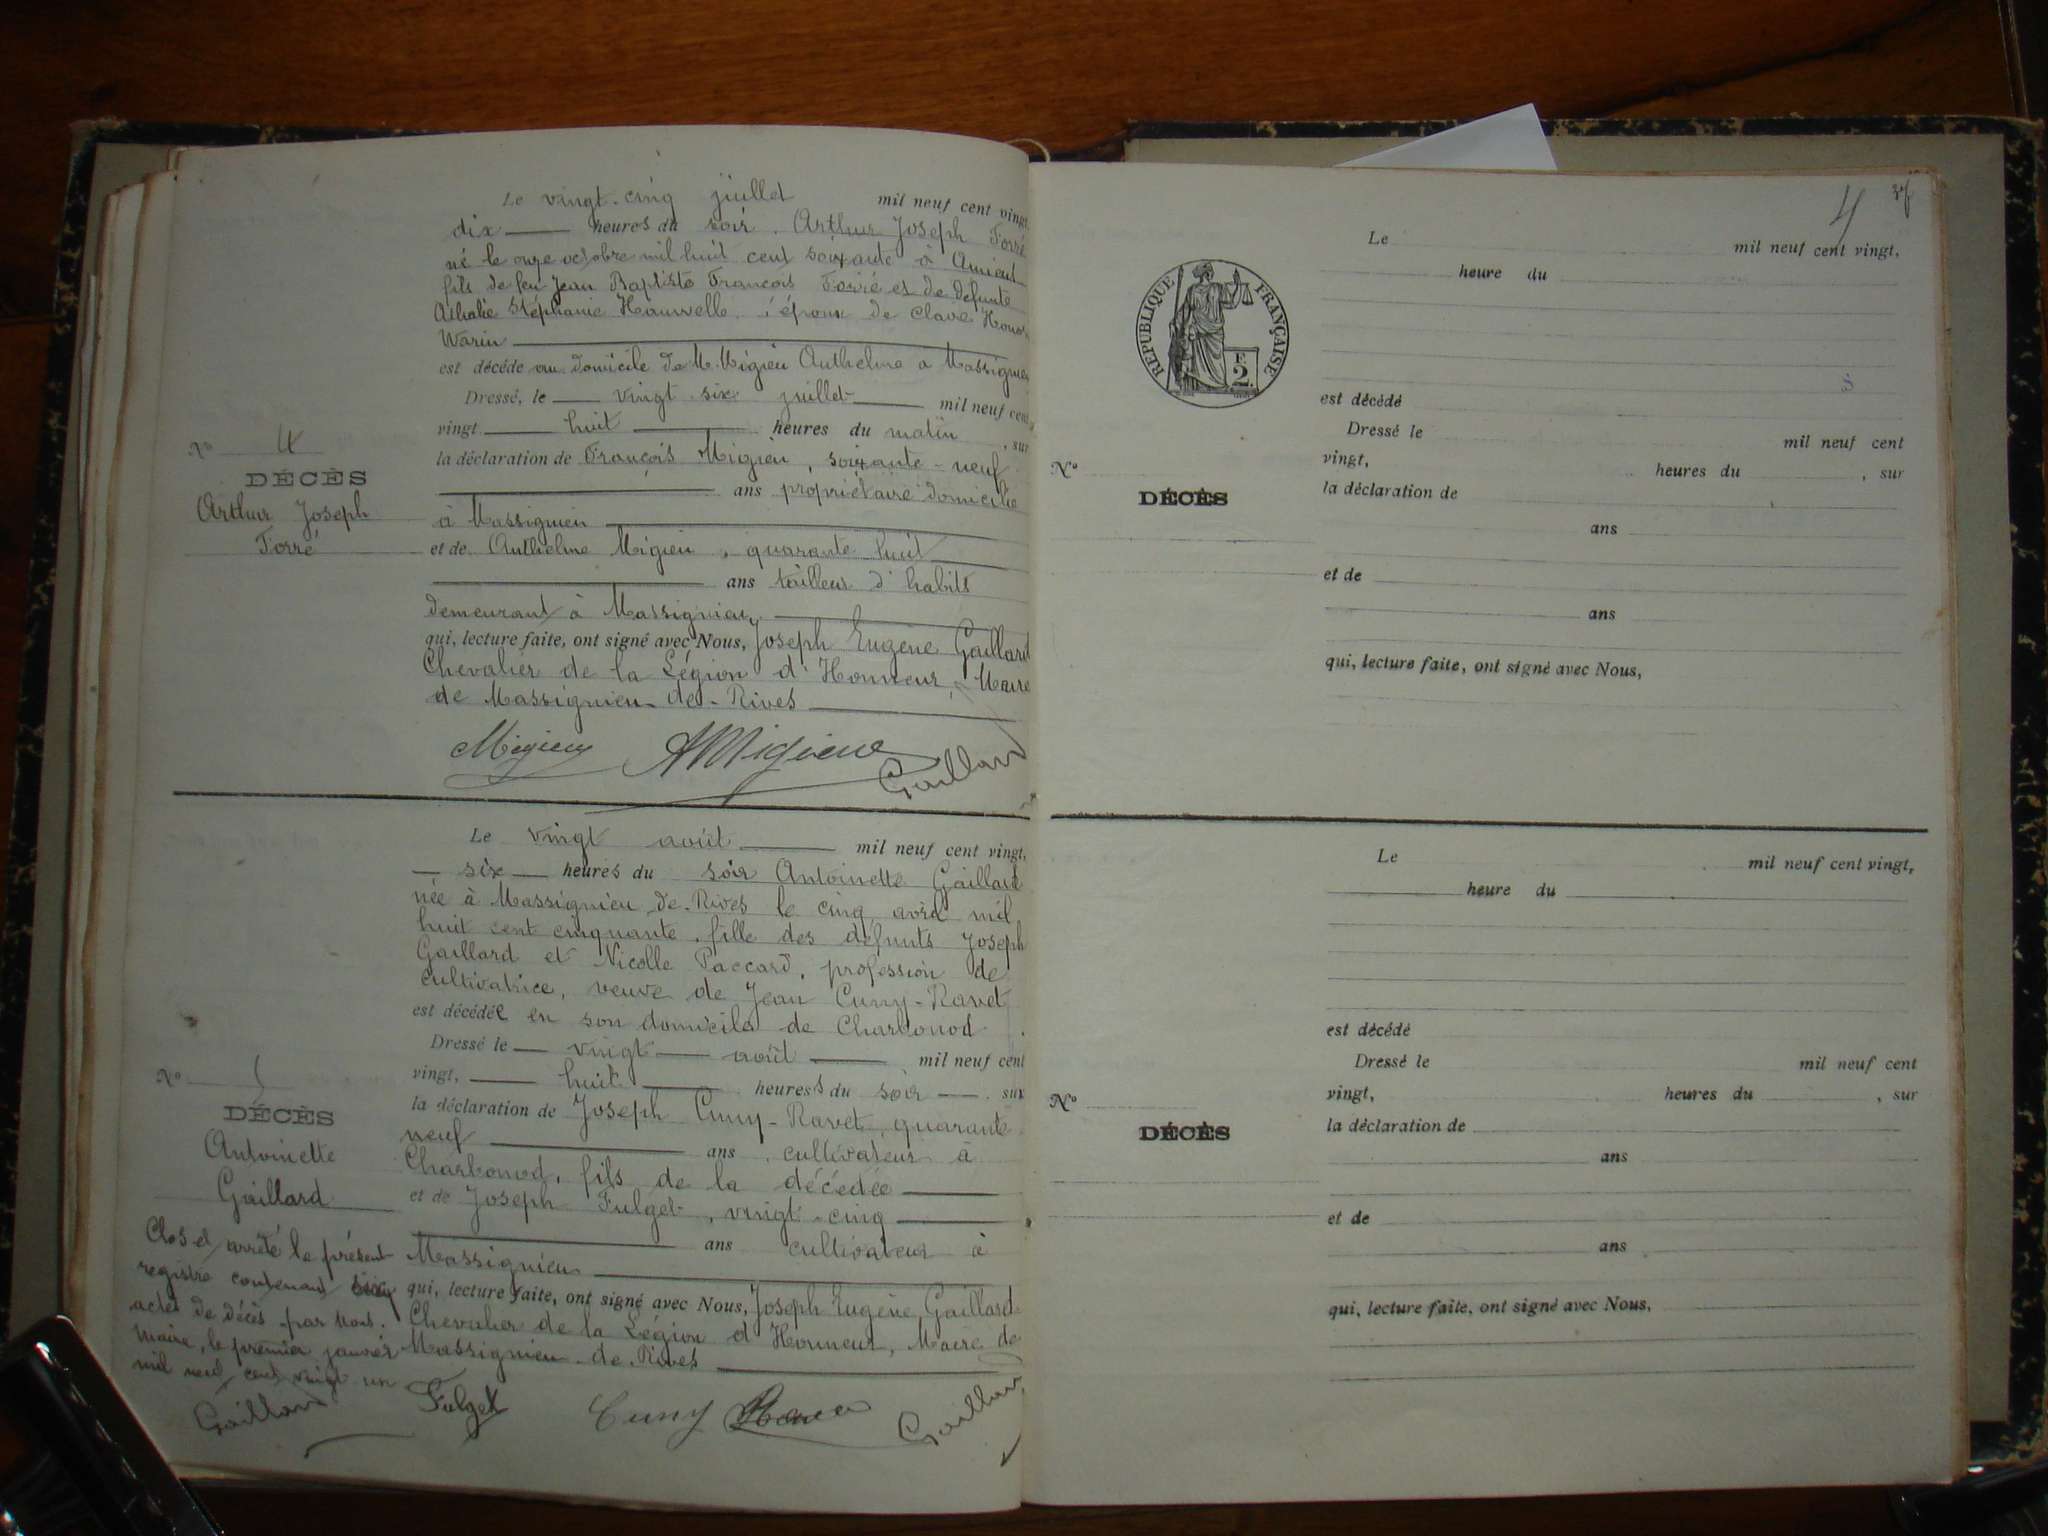 Le vingt-cinq juillet mil neuf cent vingt,
dix heures du soir. Arthur Joseph Forré
né le onze octobre mil huit cent soixante à
fils de feu Jean Baptiste François Forré et de défunte
Athalie Stéphanie époux de Clave
Warin
est décédé au domicile de M. Migieu Anthelme a Massignieu
Dressé, le vingt-six juillet mil neuf cent
vingt huit heures du matin, sur
la déclaration de François Migieu, soixante-neuf
ans propriétaire domicilié
à Massignieu
et de Anthelme Migieu, quarante huit
ans tailleur d'habits
demeurant à Massignieu,
qui, lecture faite, ont signé avec Nous, Joseph Eugène Gaillard
Chevalier de la Légion d'Honneur, Maire
de Massignieu-de-Rives
Migieu AMigieu Gaillard
N° 4
DÉCÈS
Arthur Joseph
Forré
Le vingt août mil neuf cent vingt,
six heures du soir Antoinette Gaillard
née à Massignieu de-Rives le cinq avril mil
huit cent cinquante, fille des défunts Joseph
Gaillard et Nicolle Paccard, profession de
cultivatrice, veuve de Jean Cuny-Ravet
est décédée en son domicile de Charbonod
Dressé le vingt août mil neuf cent
vingt, huit heures du soir, sur
la déclaration de Joseph Cuny-Ravet, quarante
neuf ans, cultivateur à
Charbonod, fils de la décédée
et de Joseph Fulget, vingt-cinq
ans cultivateur à
Massignieu
qui, lecture faite, ont signé avec Nous, Joseph Eugène Gaillard
Chevalier de la Légion d'Honneur, Maire de
Massignieu-de-Rives
Fulget Cuny Gaillard
N° 5
DÉCÈS
Antoinette
Gaillard
Clos et arrêté le présent
registre contenant
actes de décès par Nous.
Maire, le premier janvier
mil neuf cent vingt un
Gaillard
4 37
RÉPUBLIQUE FRANÇAISE
F.
2.
Le mil neuf cent vingt,
heure du
est décédé
Dressé le mil neuf cent
vingt, heures du , sur
la déclaration de
ans
et de
ans
qui, lecture faite, ont signé avec Nous,
N°
DÉCÈS
Le mil neuf cent vingt,
heure du
est décédé
Dressé le mil neuf cent
vingt, heures du , sur
la déclaration de
ans
et de
ans
qui, lecture faite, ont signé avec Nous,
N°
DÉCÈS